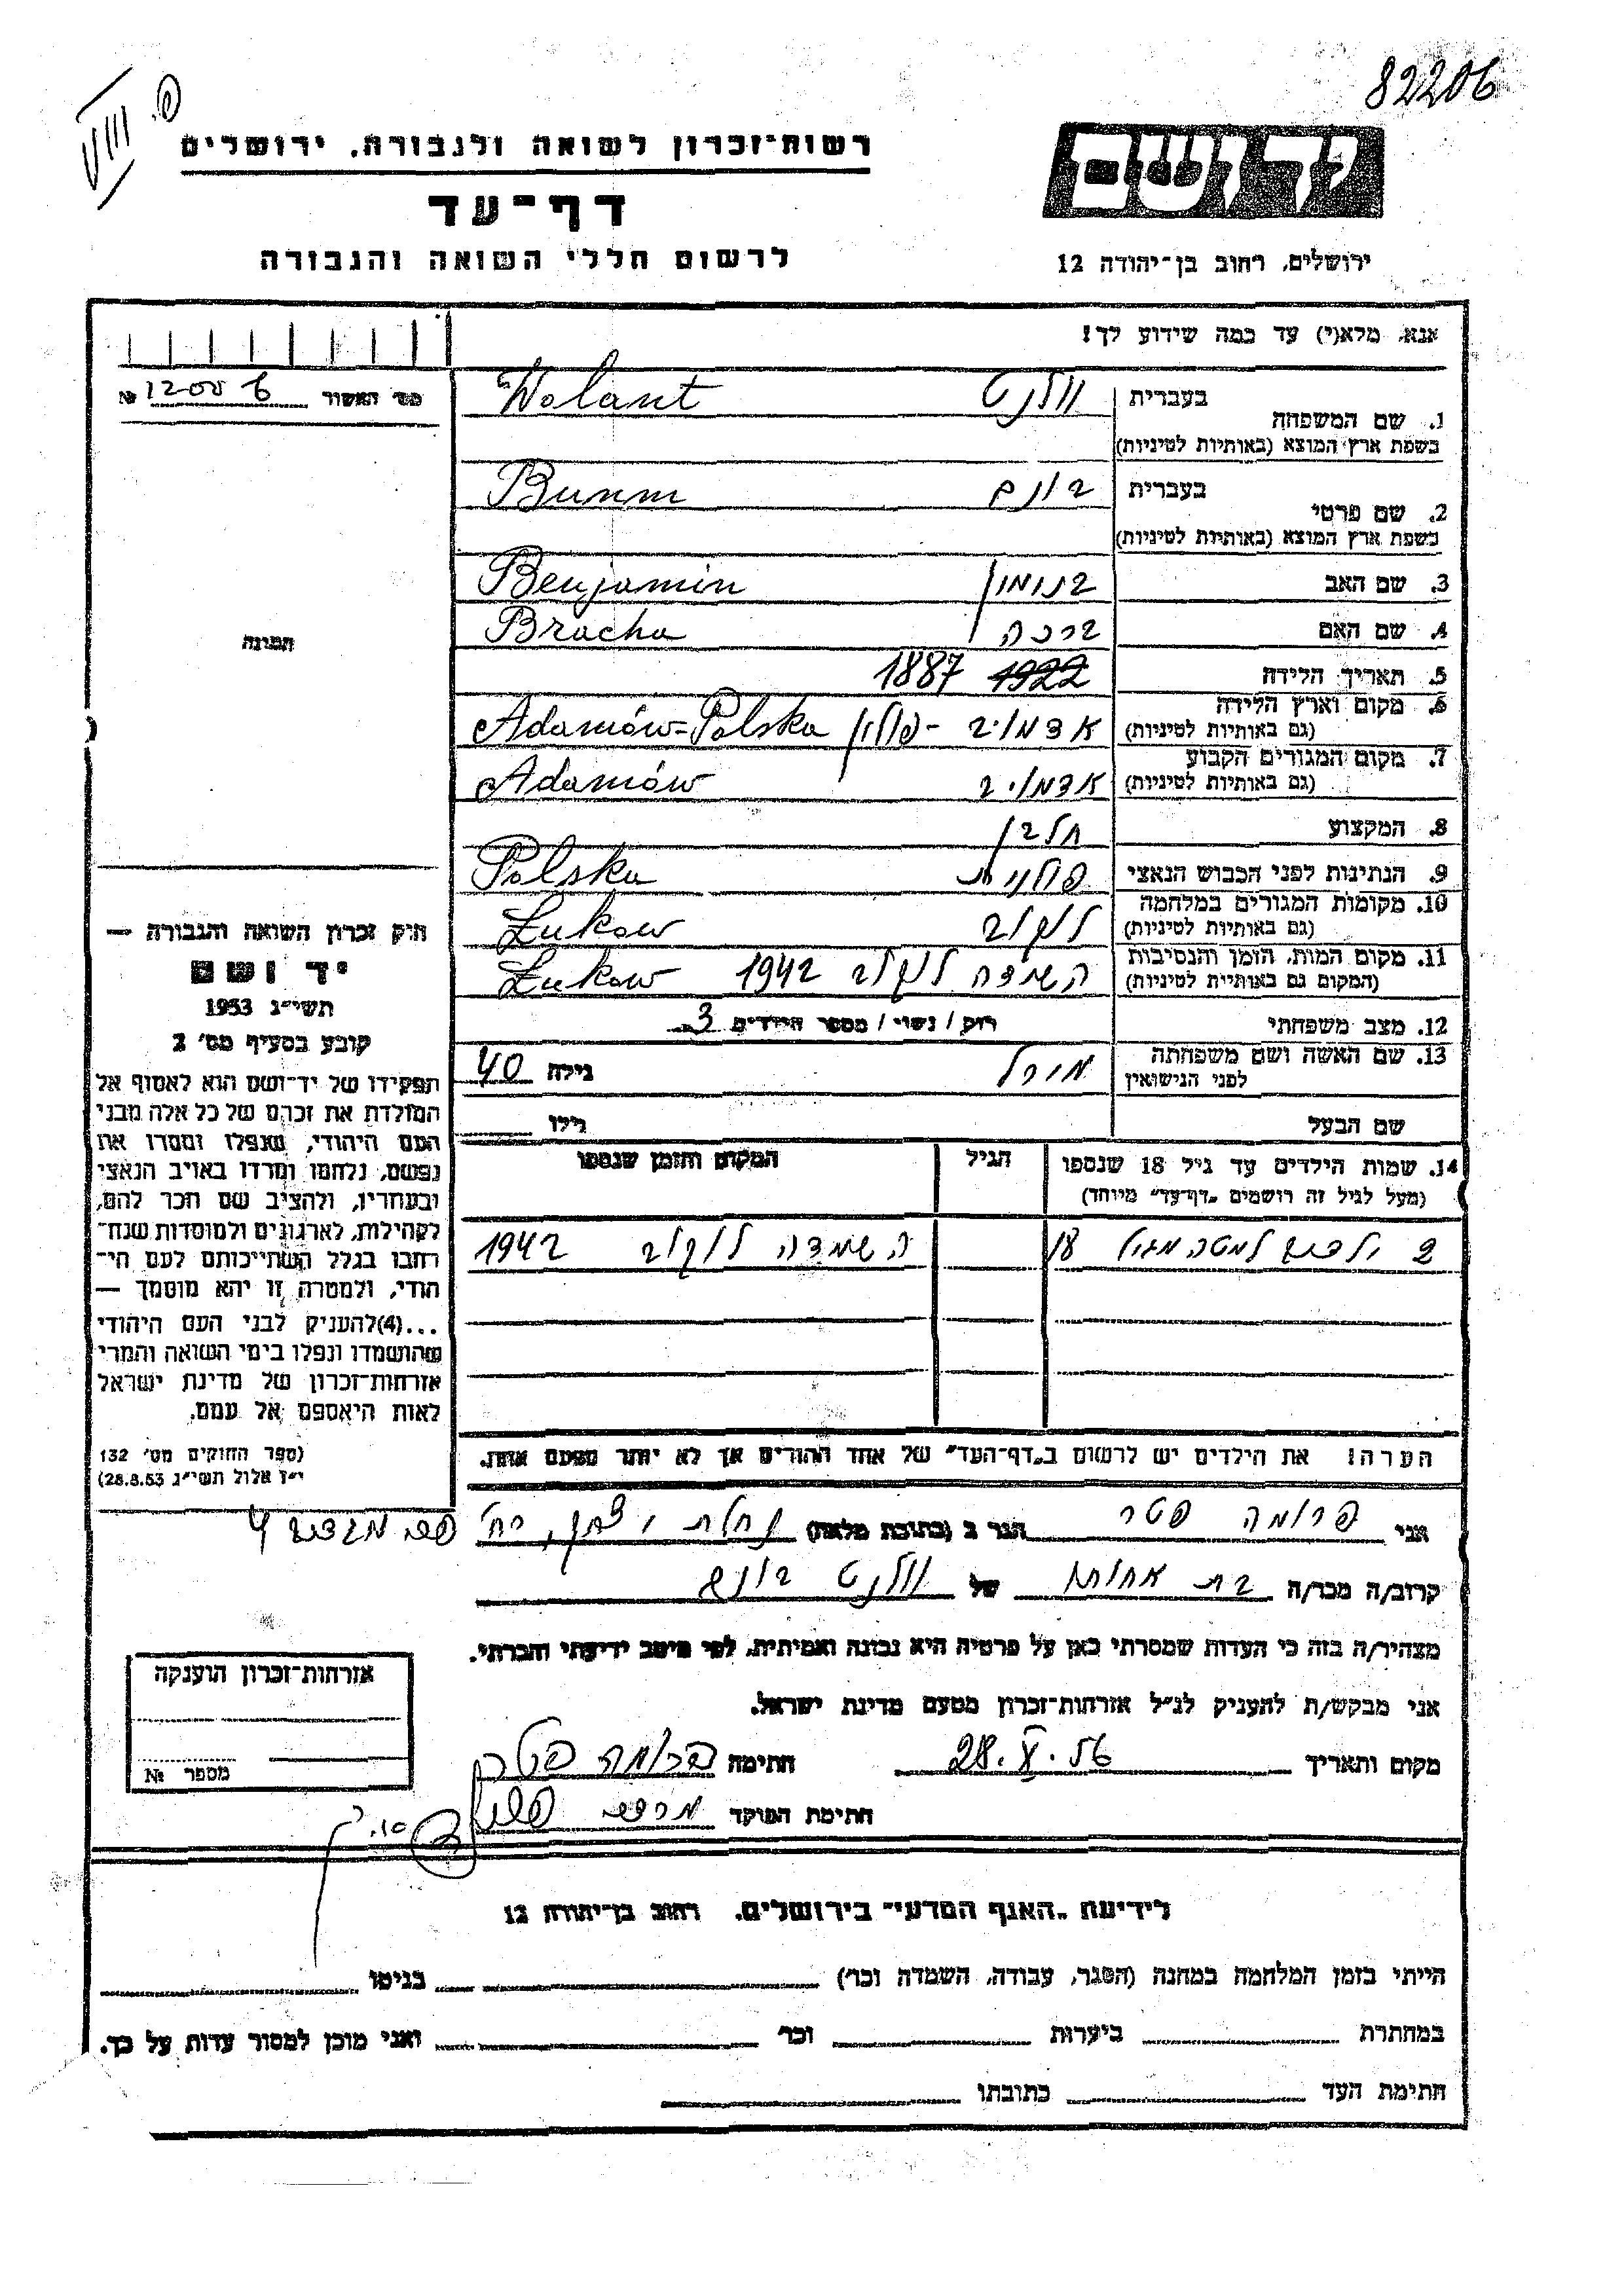 82206
רשות־זכרון לשואה ולגבורה, ירושלים
דף־עד
לרשום חללי השואה והגבורה
יד ושם
ירושלים, רחוב בן־יהודה 12
אנא, מלא(י) עד כמה שידוע לך!
מס׳ האשור №
1. שם המשפחה בעברית וולנט Wolant
בשפת ארץ המוצא (באותיות לטיניות)
2. שם פרטי בעברית בונם Bunm
בשפת ארץ המוצא (באותיות לטיניות)
3. שם האב בנימין Benjamin
4. שם האם ברכה Bracha
5. תאריך הלידה 1922 1887
6. מקום וארץ הלידה אדמוב - פולין Adamów-Polska
(גם באותיות לטיניות)
7. מקום המגורים הקבוע אדמוב Adamów
(גם באותיות לטיניות)
8. המקצוע חלבן
9. הנתינות לפני הכבוש הנאצי פולנית Polska
10. מקומות המגורים במלחמה לוקוב Łukow
(גם באותיות לטיניות)
11. מקום המות, הזמן והנסיבות השמדה לוקוב 1942 Łukow
(המקום גם באותיות לטיניות)
12. מצב משפחתי רווק / נשוי / מספר הילדים 3
13. שם האשה ושם משפחתה לפני הנישואין מירל גילה 40
שם הבעל גילו
14. שמות הילדים עד גיל 18 שנספו הגיל המקום והזמן שנספו
(מעל לגיל זה רושמים „דף־עד״ מיוחד)
ילדים למטה מגיל 18 השמדה לוקוב 1942
הערה! את הילדים יש לרשום ב„דף־העד״ של אחד ההורים אך לא יותר מפעם אחת.
תמונה
חוק זכרון השואה והגבורה —
יד ושם
תשי״ג 1953
קובע בסעיף מס׳ 2
תפקידו של יד־ושם הוא לאסוף אל
המולדת את זכרם של כל אלה מבני
העם היהודי, שנפלו ומסרו את
נפשם, נלחמו ומרדו באויב הנאצי
ובעוזריו, ולהציב שם וזכר להם,
לקהילות, לארגונים ולמוסדות שנח־
רבו בגלל השתייכותם לעם הי־
הודי, ולמטרה זו יהא מוסמך —
...(4)להעניק לבני העם היהודי
שהושמדו ונפלו בימי השואה והמרי
אזרחות־זכרון של מדינת ישראל
לאות היאספם אל עמם.
(ספר החוקים מס׳ 132
י״ז אלול תשי״ג 28.8.53)
אני פרומה פטר הגר ב (כתובת מלאה) נחלת יצחק, רח׳
קרוב/ה מכר/ה בת אחות של וולנט בונם
מצהיר/ה בזה כי העדות שמסרתי כאן על פרטיה היא נכונה ואמיתית, לפי מיטב ידיעתי והכרתי.
אני מבקש/ת להעניק לנ״ל אזרחות־זכרון מטעם מדינת ישראל.
מקום ותאריך 28. X. 56 חתימה פרומה פטר
חתימת הפוקד
אזרחות־זכרון הוענקה
מספר №
לידיעת „האגף המדעי״ בירושלים, רחוב בן־יהודה 12
הייתי בזמן המלחמה במחנה (הסגר, עבודה, השמדה וכו׳) בגיטו
במחתרת ביערות וכו׳ ואני מוכן למסור עדות על כך.
חתימת העד כתובתו